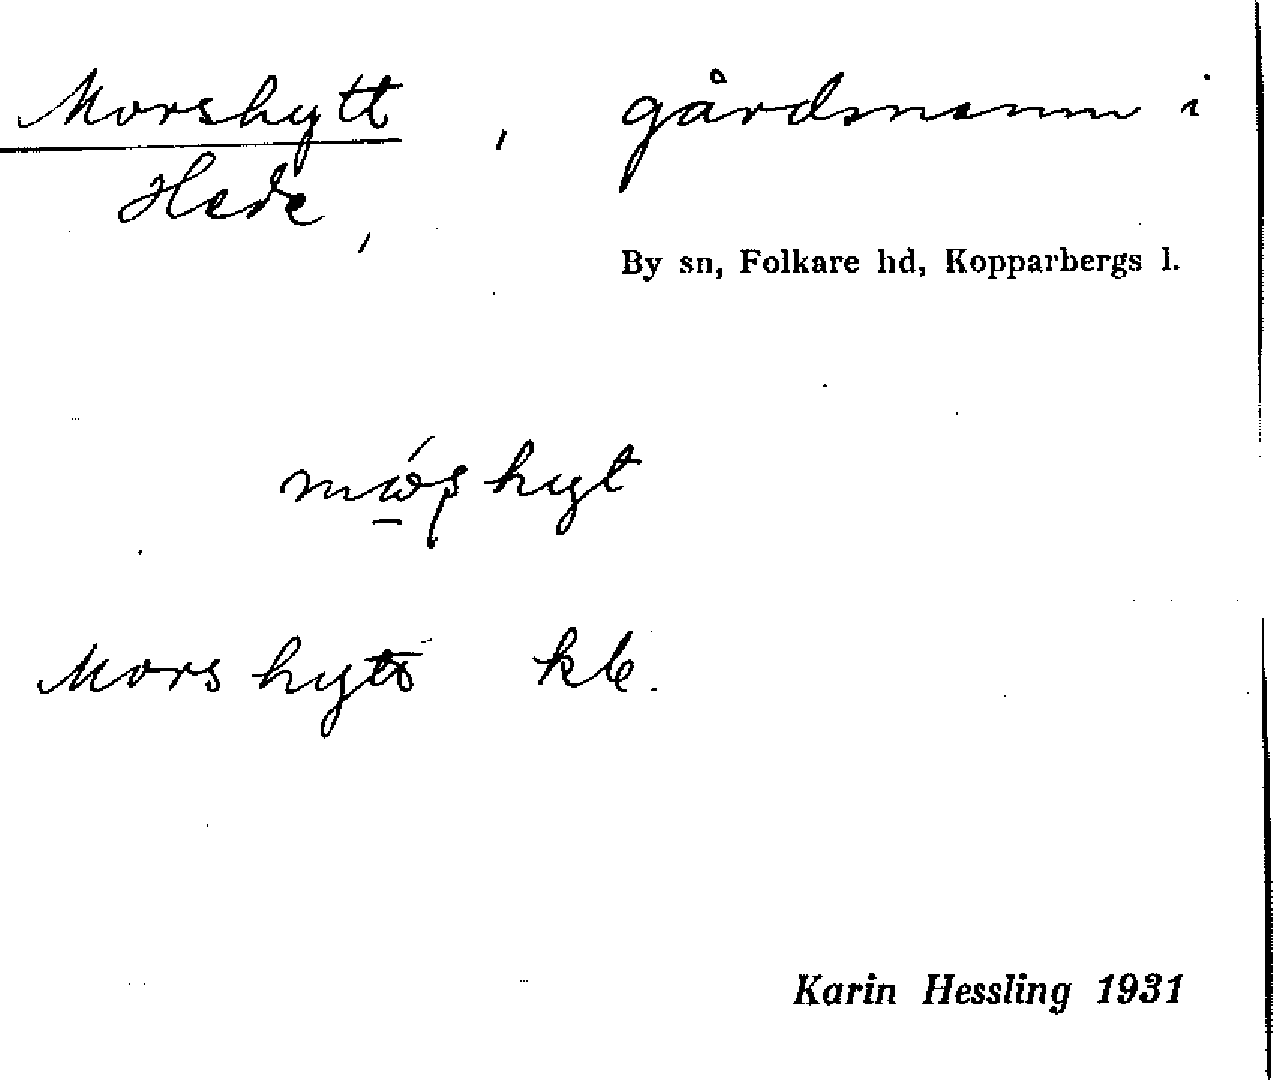 Morshytt, gårdsnamn i
Hede,
By sn, Folkare hd, Kopparbergs l.
hyt
Mors hytt kb.
Karin Hessling 1931